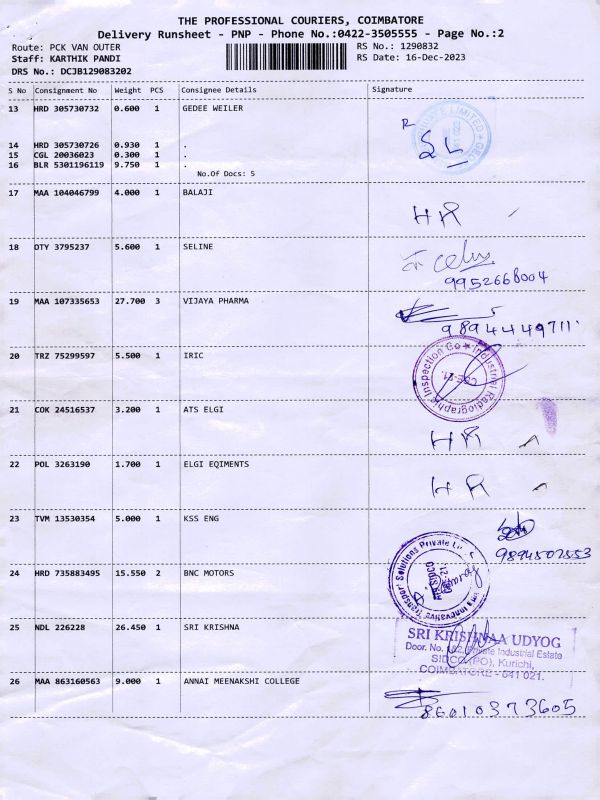 THE PROFESSIONAL COURIERS, COIMBATORE
Delivery Runsheet - PNP - Phone No.:0422-3505555 - Page No.:2
Route: PCK VAN OUTER
RS No.: 1290832
Staff: KARTHIK PANDI
RS Date: 16-Dec-2023
DRS No.: DCJB129083202
S No Consignment No Weight PCS Consignee Details Signature
13 HRD 305730732 0.600 1 GEDEE WEILER
14 HRD 305730726 0.930 1 .
15 CGL 20036023 0.300 1 .
16 BLR 5301196119 9.750 1 .
No.Of Docs: 5
17 MAA 104046799 4.000 1 BALAJI
HR
18 DTY 3795237 5.600 1 SELINE
9952668004
19 MAA 107335653 27.700 3 VIJAYA PHARMA
9894449711
20 TRZ 75299597 5.500 1 IRIC
Industrial Radiographic Inspection Co
CBE-21.
21 COK 24516537 3.200 1 ATS ELGI
HR
22 POL 3263190 1.700 1 ELGI EQIMENTS
HR
23 TVM 13530354 5.000 1 KSS ENG
9894507553
24 HRD 735883495 15.550 2 BNC MOTORS
Innovative Transport Solutions Private
25 NDL 226228 26.450 1 SRI KRISHNA
SRI KRISHNAA UDYOG
Door. No. Private Industrial Estate
SIDCO (PO), Kurichi,
COIMBATORE - 641 021.
26 MAA 863160563 9.000 1 ANNAI MEENAKSHI COLLEGE
86010373605